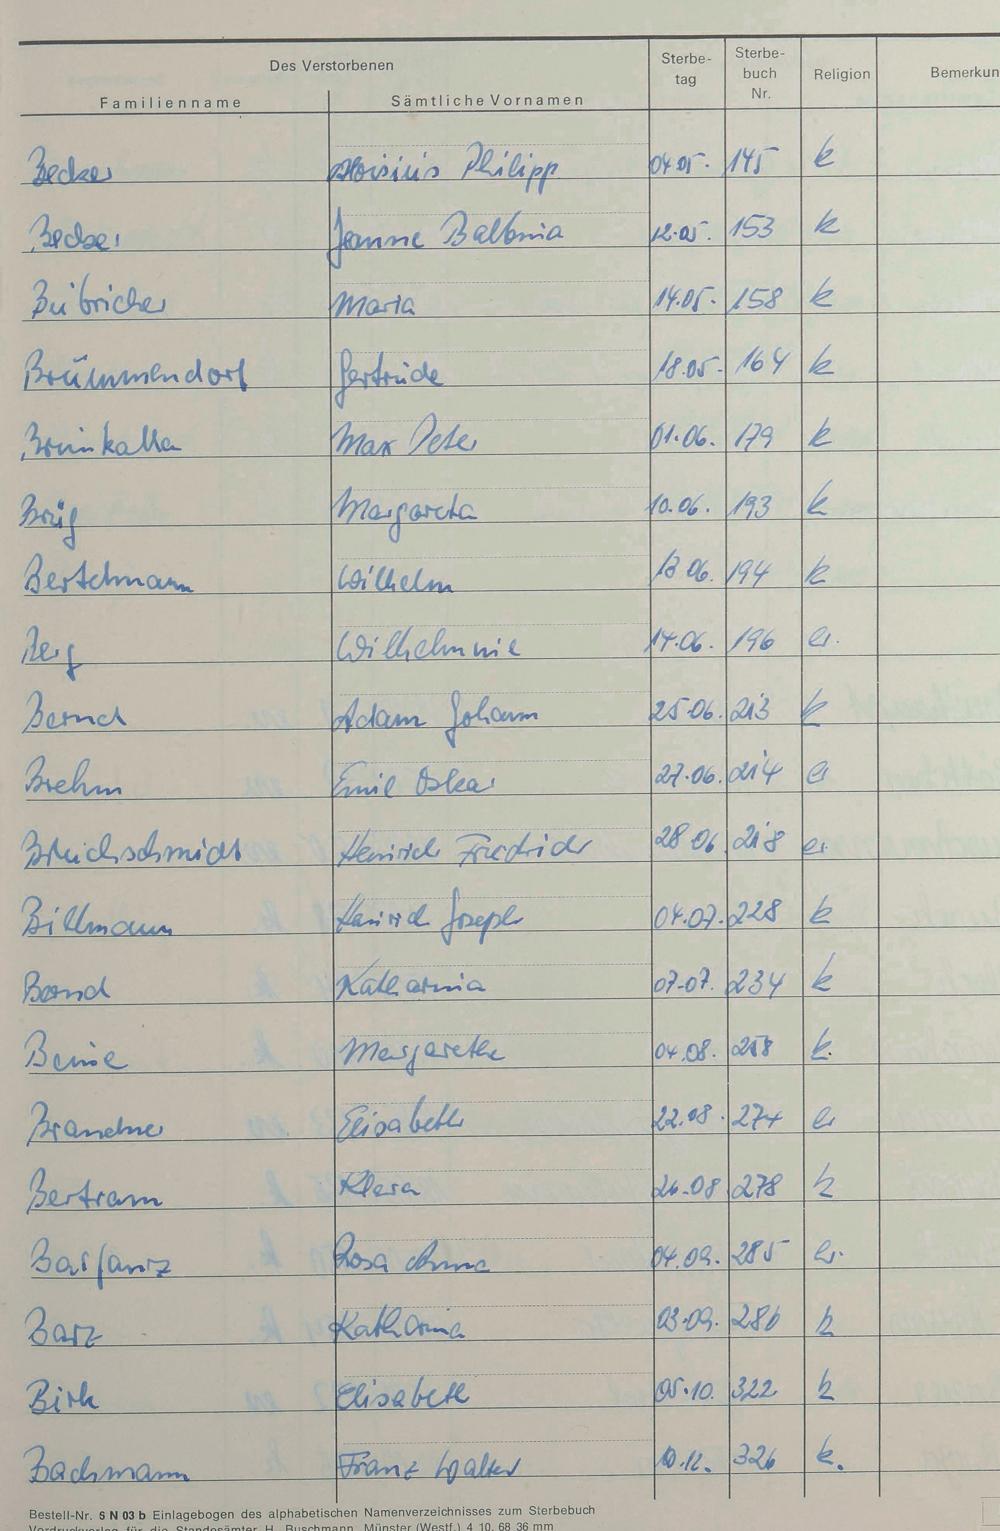 Des Verstorbenen
Familienname Sämtliche Vornamen Sterbe-tag Sterbe-buch Nr. Religion Bemerkun
Becker Aloisius Philipp 04.05. 145 k
Becker Jeanne Balbina 12.05. 153 k
Bübricher Maria 14.05. 158 k
Brümmendorf Gertrude 18.05. 164 k
Max Peter 01.06. 179 k
Brüg Margareta 10.06. 193 k
Bertelmann Wilhelm 13 06. 194 k
Berg Wilhelmine 14.06. 196 ev.
Bernd Adam Johann 25.06. 213 k
Brehm Emil Oskar 27.06. 214 ev
Bleichschmidt Heinrich Friedrich 28 06 218 ev.
Billmann Heinrich Joseph 04.07. 228 k
Bernd Katharina 07.07. 234 k
Beine Margarethe 04.08. 258 k.
Brandner Elisabeth 22.08. 274 ev
Bertram Klara 26.08 278 k
Barfanz Rosa Anna 04.09. 285 ev.
Barz Katharina 03.09. 286 k
Birk Elisabeth 05.10. 322 k
Bachmann Franz Walter 10.12. 326 k.
Bestell-Nr. S N 03 b Einlagebogen des alphabetischen Namenverzeichnisses zum Sterbebuch
Vordruckverlag für die Standesämter H. Buschmann, Münster (Westf.) 4 10. 68 36 mm